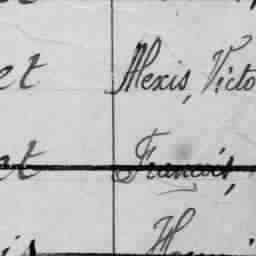 et Alexis, Victo
at François,
is Henri